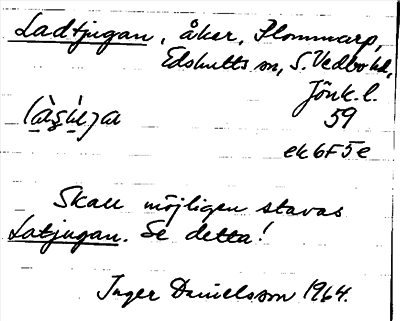 Ladtjugan, åker, Plommarp,
Edshults sn, S. Vedbo hd,
Jönk. l.
59
ek 6F5e
Skall möjligen stavas
Latjugan. Se detta!
Inger Danielsson 1964.